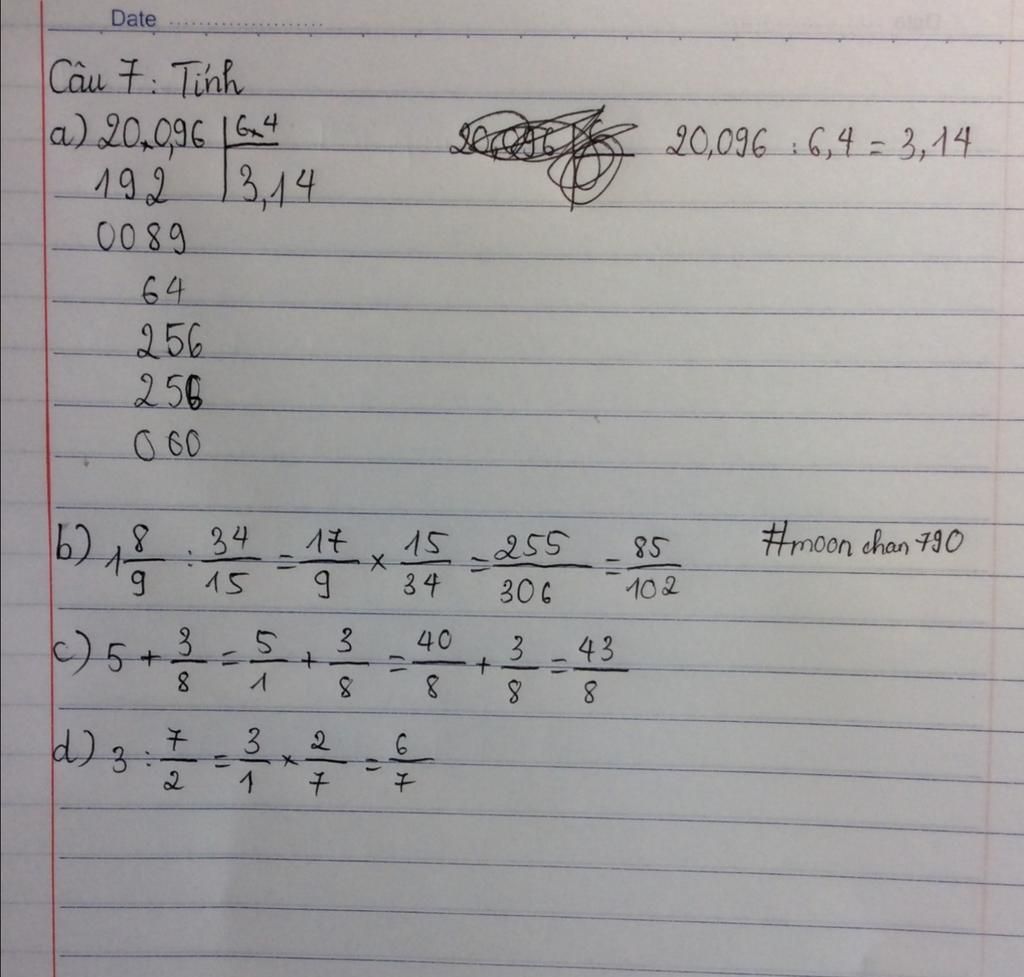 Date
Câu 7: Tính
a) 20,0,96 | 6,4 20,096 : 6,4 = 3,14
192 | 3,14
0089
64
256
256
000
b) 1 8/9 : 34/15 = 17/9 × 15/34 = 255/306 = 85/102 #moon chan 790
c) 5 + 3/8 = 5/1 + 3/8 = 40/8 + 3/8 = 43/8
d) 3 : 7/2 = 3/1 × 2/7 = 6/7